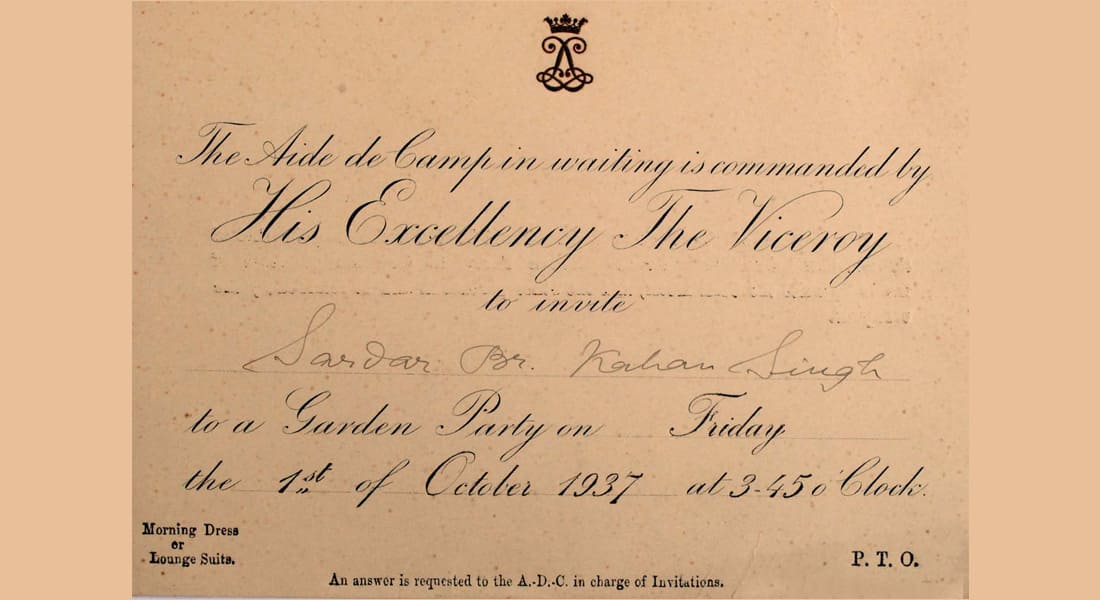 The Aide de Camp in waiting is commanded by
His Excellency The Viceroy
to invite
Sardar Br. Kahan Singh
to a Garden Party on Friday
the 1st of October 1937 at 3-45 o'Clock.
Morning Dress
or
Lounge Suits.
P. T. O.
An answer is requested to the A.-D.-C. in charge of Invitations.